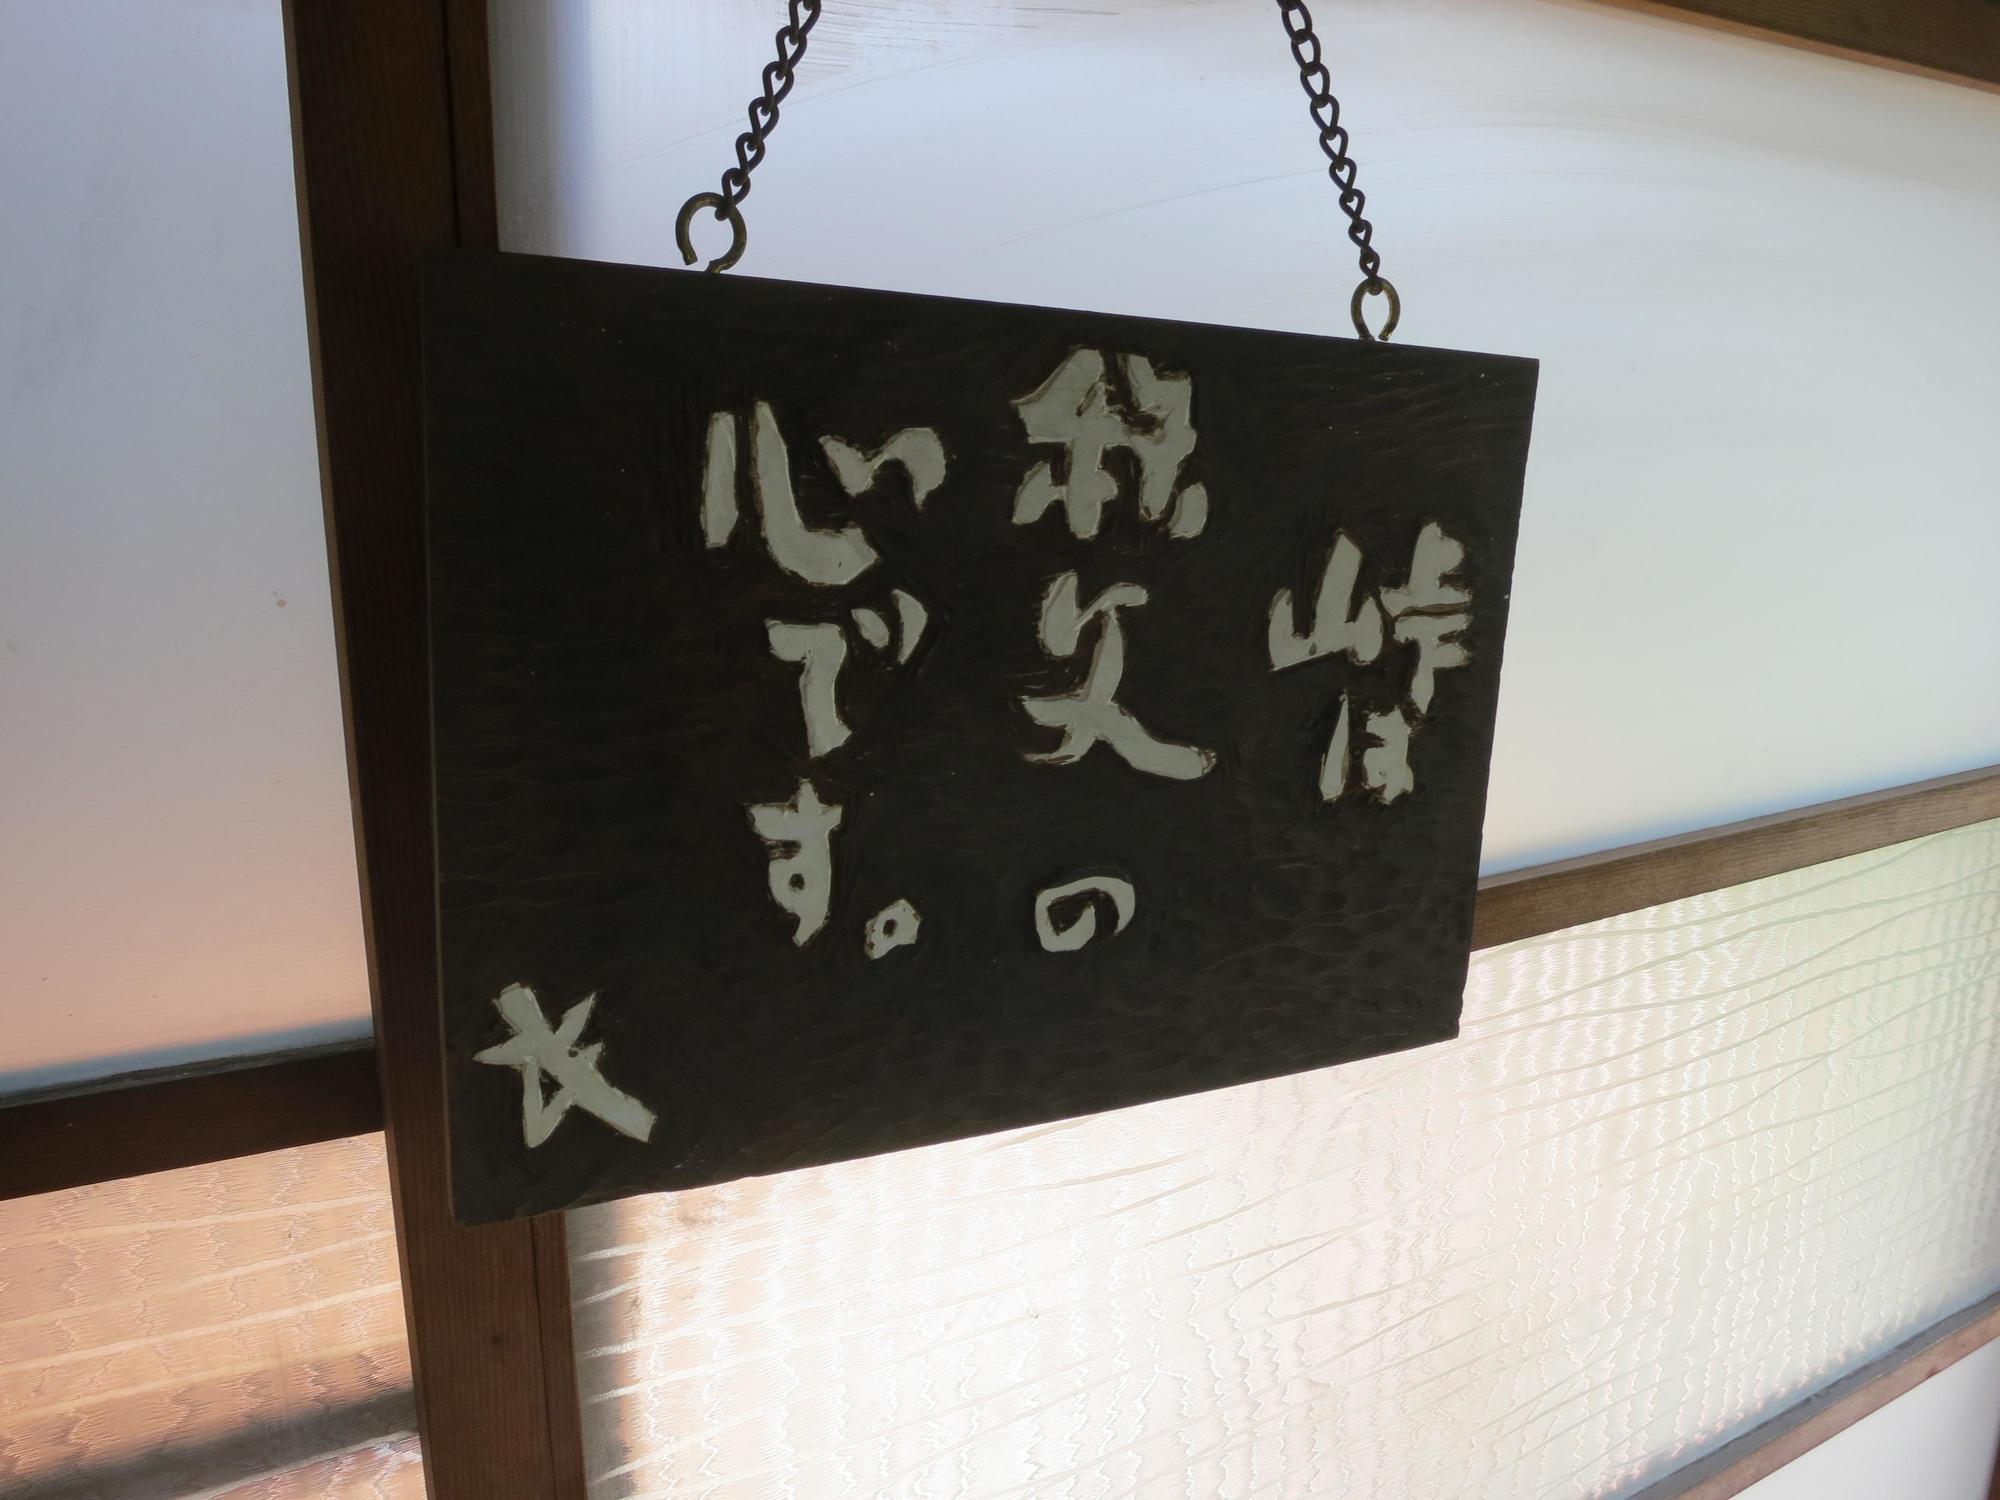 峠は
秩父の
心です。